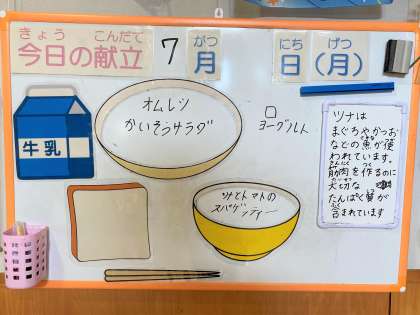 きょう こんだて
今日の献立
7
がつ
月
にち
日
げつ
(月)
牛乳
オムレツ
かいそうサラダ
ヨーグルト
ツナとトマトの
スパゲッティー
ツナは
まぐろやかつお
などの魚が使
われています。
きんにく つく
筋肉を作るのに
大切な
たんぱく質が
含まれています